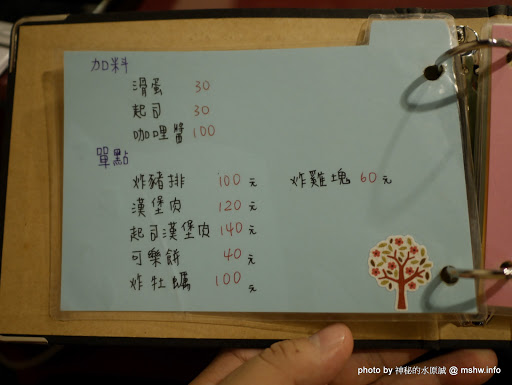 加料
滑蛋 30
起司 30
咖哩醬 100
單點
炸豬排 100元
炸雞塊 60元
漢堡肉 120元
起司漢堡肉 140元
可樂餅 40元
炸牡蠣 100元
photo by 神秘的水原誠 @ mshw.info